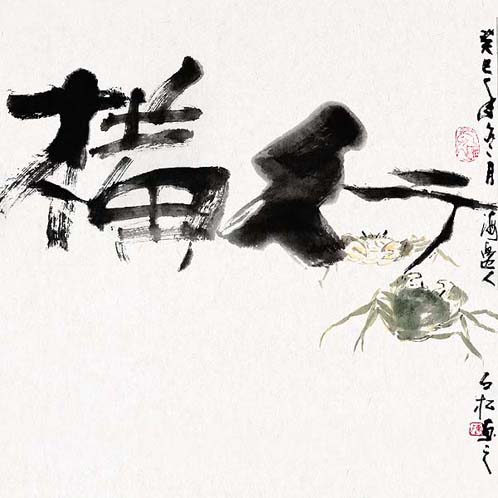 横行
癸巳年冬月 海邊人
石松画之